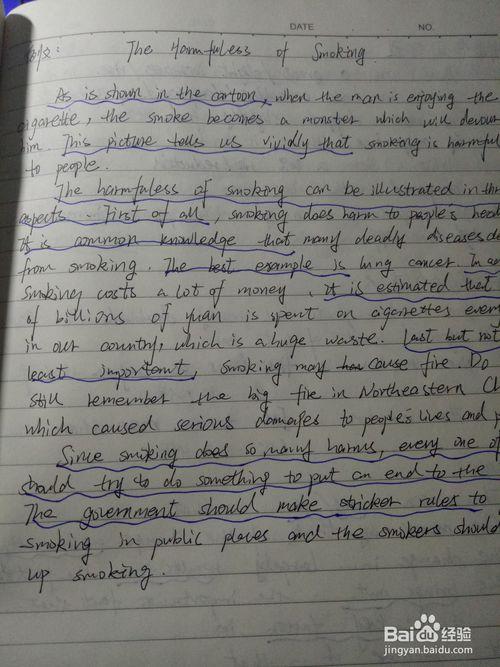 DATE NO.
The Harmfuless of Smoking
As is shown in the cartoon, when the man is enjoying the
cigarette, the smoke becomes a monster which will devour
him. This picture tells us vividly that smoking is harmful
to people.
The harmfuless of smoking can be illustrated in
aspects. First of all, smoking does harm to people's
It is common knowledge that many deadly diseases
from smoking. The best example is lung cancer. In
smoking costs a lot of money. It is estimated that
of billions of yuan is spent on cigarettes
in our country, which is a huge waste. Last but not
least important, smoking may cause fire. Do
still remember the big fire in Northeastern
which caused serious damages to people's lives and
Since smoking does so many harms, every one of
should try to do something to put an end to the
The government should make stricker rules to
smoking in public places and the smokers should
up smoking.
Bai du 经验
jingyan.baidu.com